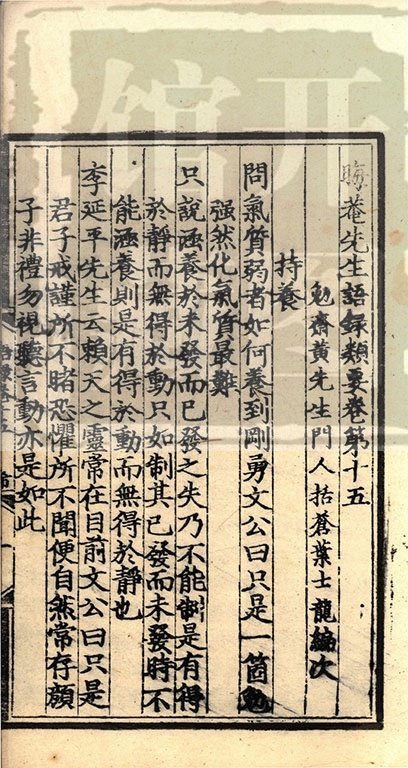 晦菴先生語錄類要卷第十五
勉齋黃先生門人括蒼葉士龍編次
持養
問氣質弱者如何養到剛勇文公曰只是一箇勉
强然化氣質最難
只說涵養於未發而已發之失乃不能制是有得
於靜而無得於動只如制其已發而未發時不
能涵養則是有得於動而無得於靜也
李延平先生云賴天之靈常在目前文公曰只是
君子戒謹所不睹恐懼所不聞便自然常存顏
子非禮勿視聽言動亦是如此